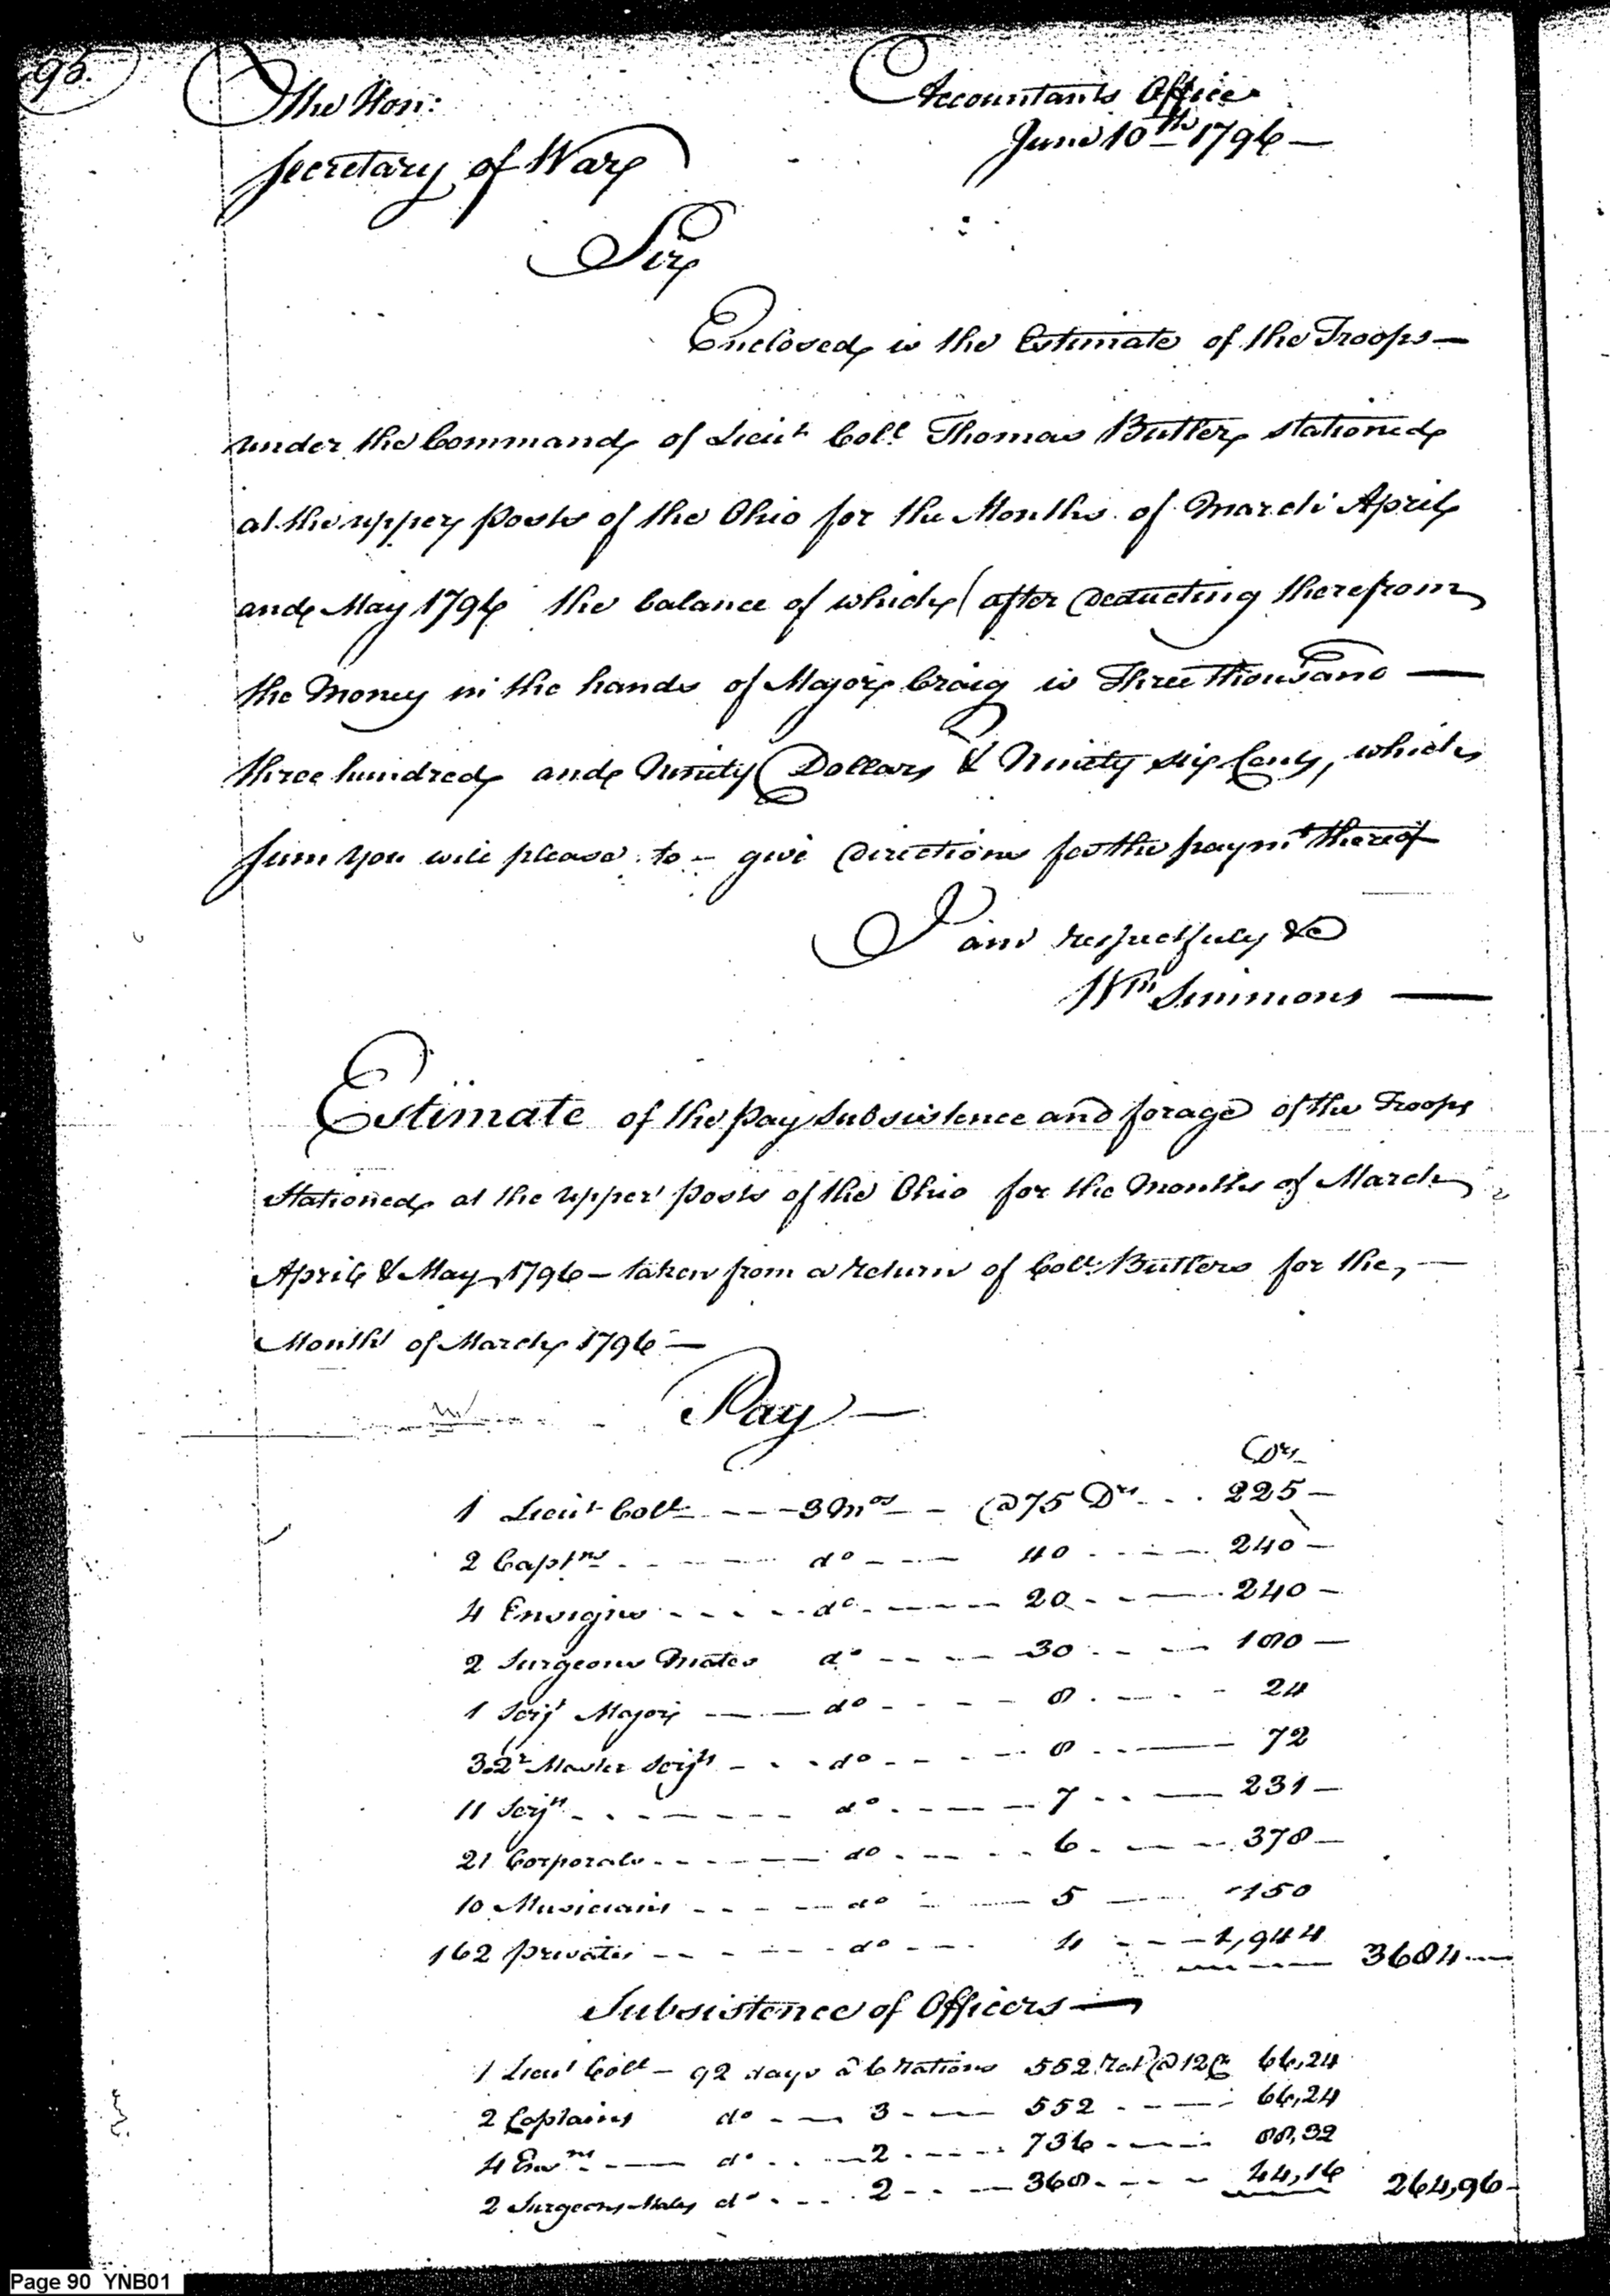 95.
The Hon:
Secretary of War
Accountants Office
June 10th 1796 —
Sir
Enclosed is the Estimate of the Troops —
under the Command of Lieut Coll Thomas Butler stationed
at the upper posts of the Ohio for the Months of March April
and May 1796 the balance of which (after deducting therefrom
the Money in the hands of Major Craig is Three thousand —
three hundred and Ninety Dollars & Ninety six Cents, which
sum you will please to - give directions for the paymt thereof
I am respectfuly &c
Wm Simmons —
Estimate of the Pay Subsistence and forage of the Troops
Stationed at the Upper posts of the Ohio for the Months of March
April & May 1796 — taken from a return of Coll Butlers for the, —
Month of March 1796 —
Pay —
Drs
1 Lieut Coll - - - 3 Mos - - @ 75 Drs - . . 225 —
2 Captns . - - - do - - - 40 . - - - 240 —
4 Ensigns - - - - do - - - 20 - - - 240 —
2 Surgeons Mates do - - - 30 . - - 180 —
1 Serjt Major - - do - - - - 8 . - . - 24
3 Qr Master Serjts - . - do - - - - 8 . - - 72
11 Serjts . . - - - - do . - - - 7 - . - 231 —
21 Corporals - - - - do . - - . - 6 . - - 378 —
10 Musicians - - - - do - - 5 - - 150
162 privates - - - - do - - - 4 - - - 1,944 3684 —
Subsistence of Officers —
1 Lieut Colt — 92 days a 6 rations 552 Rats @ 12 Cts 66,24
2 Captains do - - 3 - - 552 - - - 66,24
4 Ensns - - do . . - 2 - - - 736 - - - 88,32
2 Surgeons Mates do - . - . 2 - . - 368 - - - 44,16 264,96 -
Page 90 YNB01